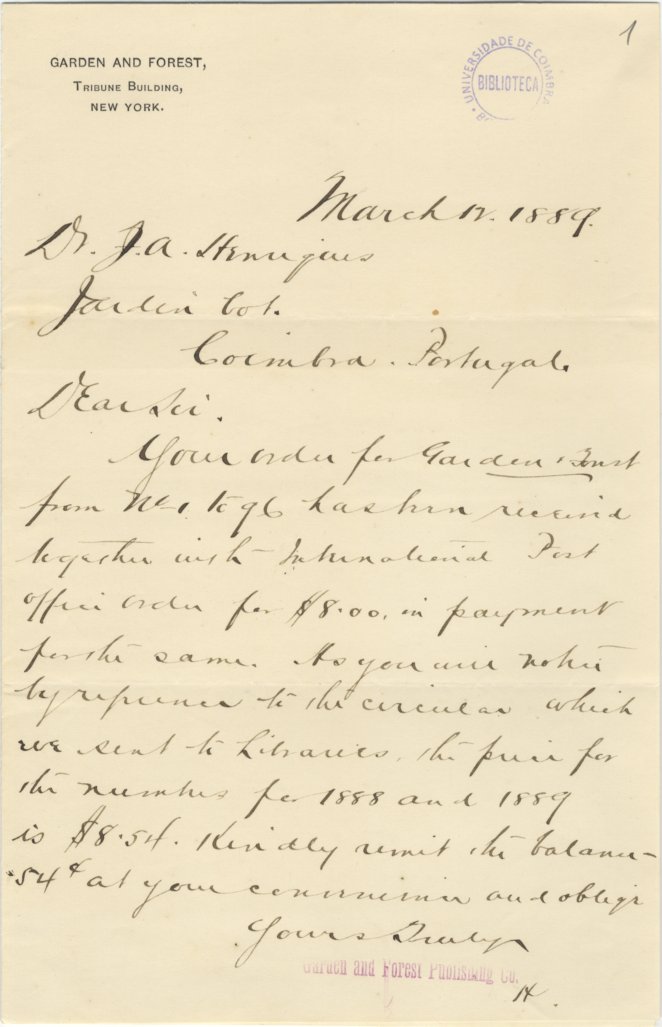 1
GARDEN AND FOREST,
TRIBUNE BUILDING,
NEW YORK.
UNIVERSIDADE DE COIMBRA
BIBLIOTECA
March 12. 1889.
Dr. J. A. Henriques
Jardin bot.
Coimbra. Portugal.
Dear Sir.
Your order for Garden & Forest
from No 1 to 96 has been received
together with International Post
office order for $8.00, in payment
for the same. As you will notice
by reference to the circular which
we sent to Libraries, the price for
the numbers for 1888 and 1889
is $8.54. Kindly remit the balance
.54¢ at your convenience and oblige
Yours Truly
Garden and Forest Publishing Co.
H.